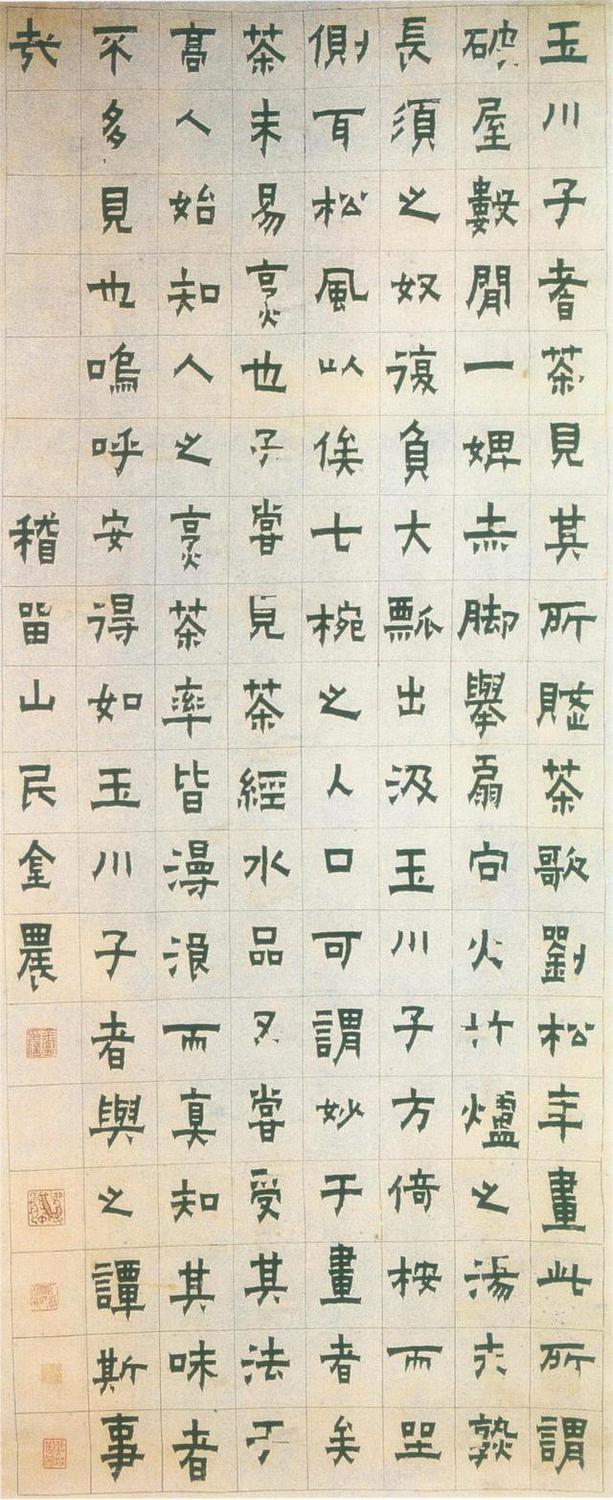 玉川子耆茶見其所賦茶歌劉松年畫此所謂
破屋數閒一婢赤脚舉扇向火竹爐之湯未孰
長須之奴復負大瓢出汲玉川子方倚桉而坐
側耳松風以俟七椀之入口可謂妙于畫者矣
茶未易烹也予嘗見茶經水品又嘗受其法于
高人始知人之烹茶率皆漫浪而真知其味者
不多見也嗚呼安得如玉川子者與之譚斯事
哉 稽留山民金農